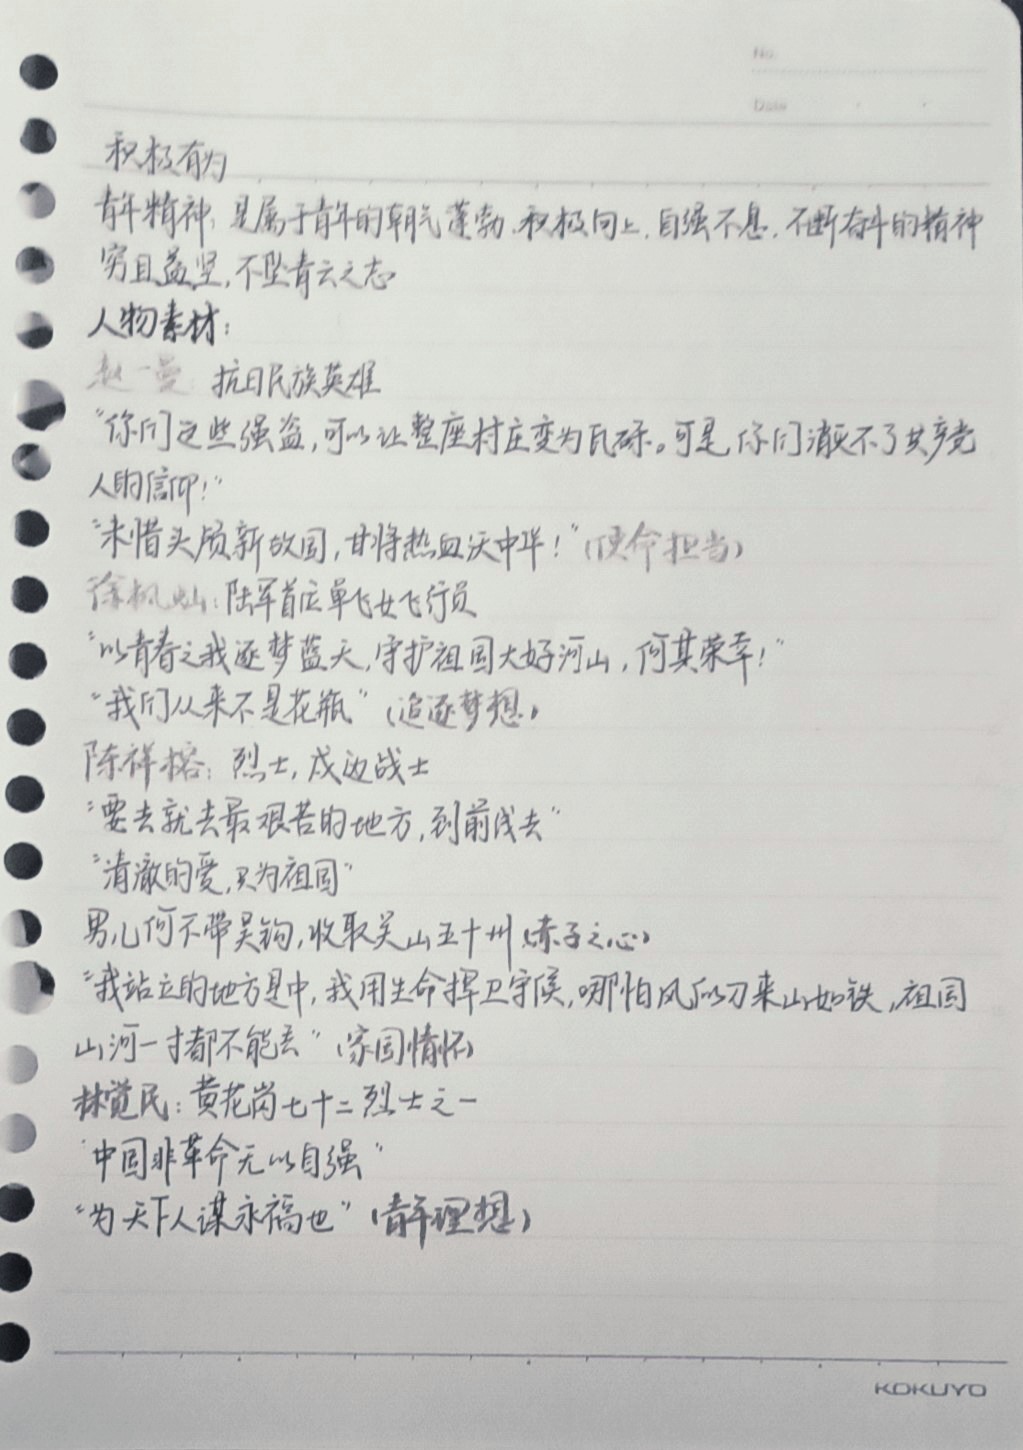 No.
Date
积极有为
青年精神：是属于青年的朝气蓬勃、积极向上、自强不息、不断奋斗的精神
穷且益坚，不坠青云之志
人物素材：
赵一曼 抗日民族英雄
“你们这些强盗，可以让整座村庄变为瓦砾。可是，你们消灭不了共产党
人的信仰！”
“未惜头颅新故国，甘将热血沃中华！”（使命担当）
徐枫灿：陆军首位单飞女飞行员
“以青春之我逐梦蓝天，守护祖国大好河山，何其荣幸！”
“我们从来不是花瓶”（追逐梦想）
陈祥榕：烈士，戍边战士
“要去就去最艰苦的地方，到前线去”
“清澈的爱，只为祖国”
男儿何不带吴钩，收取关山五十州（赤子之心）
“我站立的地方是中，我用生命捍卫守候，哪怕风似刀来山如铁，祖国
山河一寸都不能丢”（家国情怀）
林觉民：黄花岗七十二烈士之一
“中国非革命无以自强”
“为天下人谋永福也”（青年理想）
KOKUYO